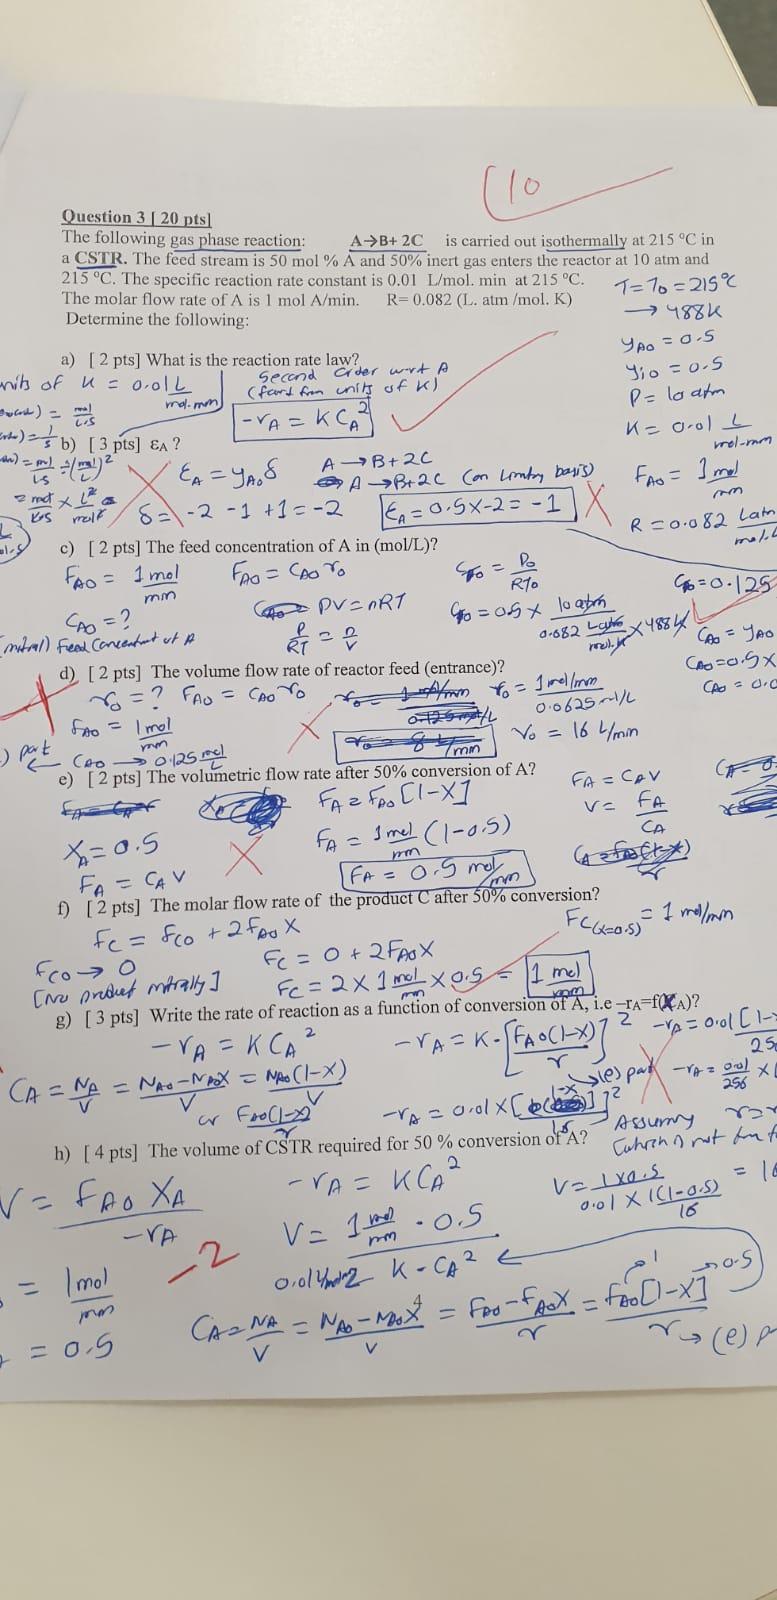 10
Question 3 [ 20 pts]
The following gas phase reaction: A→B+ 2C is carried out isothermally at 215 °C in
a CSTR. The feed stream is 50 mol % A and 50% inert gas enters the reactor at 10 atm and
215 °C. The specific reaction rate constant is 0.01 L/mol. min at 215 °C.
The molar flow rate of A is 1 mol A/min. R= 0.082 (L. atm /mol. K)
Determine the following:
T = T0 = 215°C
→ 488K
yA0 = 0.5
yi0 = 0.5
P = 10 atm
K = 0.01 L/mol-min
FA0 = 1 mol/min
R = 0.082 Latm
a) [ 2 pts] What is the reaction rate law?
of K = 0.01 L/mol.min
Second Order wrt A
(found from units of K)
-rA = KCA²
b) [ 3 pts] εA ?
εA = yA0 δ
A → B+2C
A → B+2C (on limiting basis)
δ = -2 -1 +1 = -2
εA = 0.5x-2 = -1
c) [ 2 pts] The feed concentration of A in (mol/L)?
FA0 = 1 mol/min
FA0 = CA0 v0
CT0 = P0/RT0
CA0 = ?
PV = nRT
P/RT = n/V
= 0.5 x 10 atm / 0.082 x 488K
= 0.125
CA0 = yA0
CA0 = 0.5x
Feed Concentration of A
d) [ 2 pts] The volume flow rate of reactor feed (entrance)?
v0 = ? FA0 = CA0 v0
v0 = 1 mol/min / 0.0625 mol/L
FA0 = 1 mol/min
v0 = 16 L/min
part
CA0 → 0.125 mol/L
e) [ 2 pts] The volumetric flow rate after 50% conversion of A?
FA = FA0 [1-X]
FA = CA V
XA = 0.5
FA = 1 mol/min (1-0.5)
V = FA/CA
FA = CA V
FA = 0.5 mol/min
f) [ 2 pts] The molar flow rate of the product C after 50% conversion?
FC = FC0 + 2FA0 X
FC(x=0.5) = 1 mol/min
FC0 → 0
FC = 0 + 2FA0X
[No product initially]
FC = 2 x 1 mol/min x 0.5 = 1 mol/min
g) [ 3 pts] Write the rate of reaction as a function of conversion of A, i.e –rA=f(XA)?
-rA = KCA²
-rA = K·[FA0(1-X)/v]²
-rA = 0.01 [1-
CA = NA/V = NA0 - NA0X/V = NA0(1-X)/V
or FA0(1-X)/v
(e) part
-rA = 0.01/256 x
-rA = 0.01 x [1-x/16]²
Assuming
h) [ 4 pts] The volume of CSTR required for 50 % conversion of A?
V = FA0 XA / -rA
-rA = KCA²
V = 1x0.5 / 0.01 x (1(1-0.5)/16
V = 1 mol/min · 0.5
K - CA²
-2
= 1 mol/min
= 0.5
1
0.5
4
CA = NA/V = NA0 - NA0X/V = FA0 - FA0X/v = FA0[1-X]/v → (e)